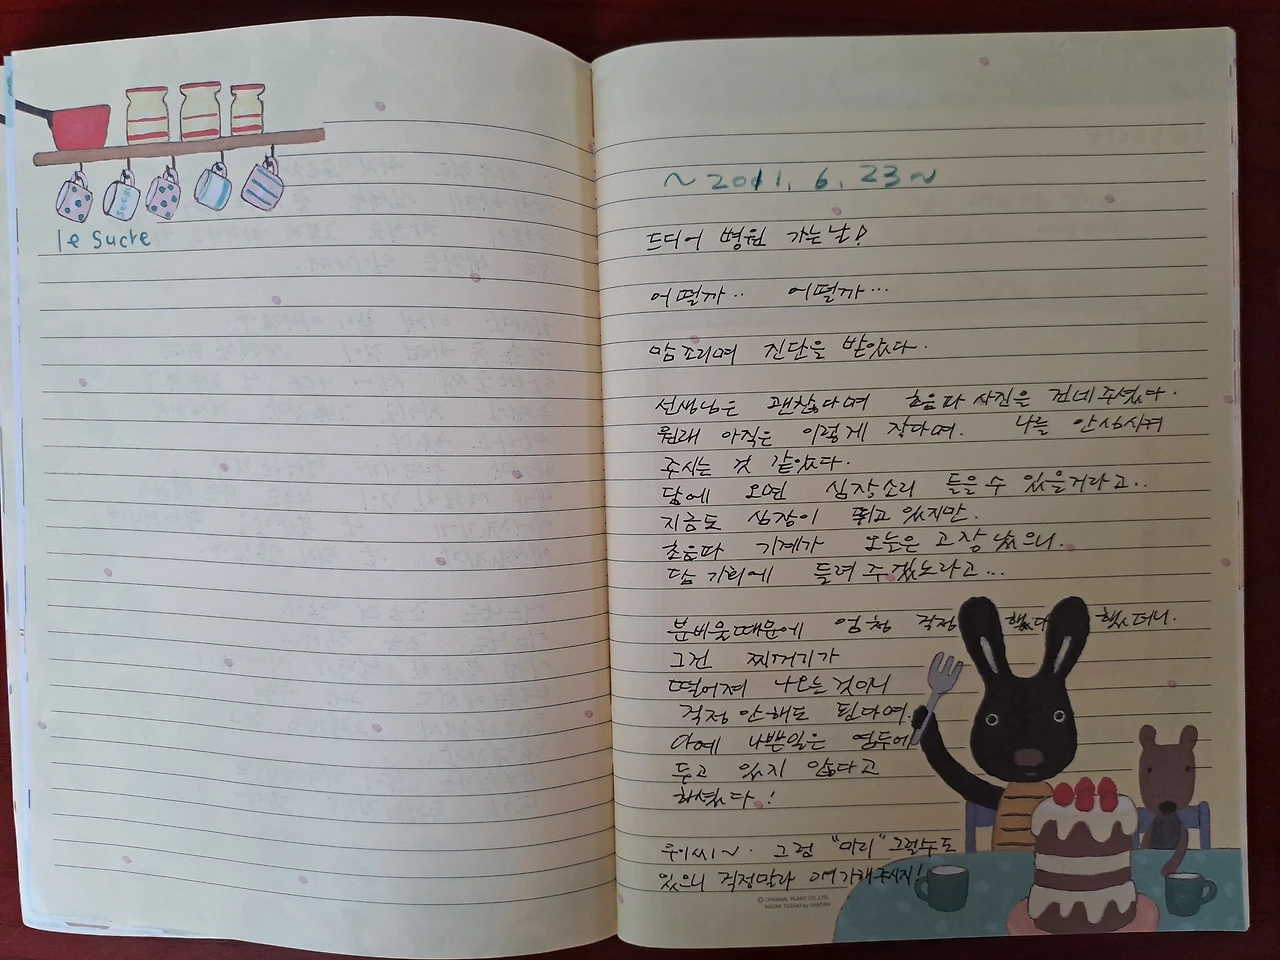 Sucre
le Sucre
~ 2011. 6. 23 ~
드디어 병원 가는날!
어떨까.. 어떨까...
맘 조리며 진단을 받았다.
선생님은 괜찮다며 초음파 사진을 건네주셨다.
원래 아직은 이렇게 작다며. 나를 안심시켜
주시는 것 같았다.
담에 오면 심장소리 들을수 있을거라고..
지금도 심장이 뛰고 있지만.
초음파 기계가 오늘은 고장났으니.
담 기회에 들려주겠노라고...
분비물때문에 엄청 걱정 했다 했더니.
그건 찌꺼기가
떨어져 나오는것이니
걱정 안해도 된다며.
아예 나쁜일은 염두에
두고 있지 않다고
하셨다!
우이씨~. 그럼 "미리" 그럴수도
있으니 걱정말라 얘기해주시지!
© ORIGINAL PLANT CO.,LTD.